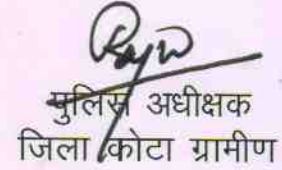 पुलिस अधीक्षक
जिला कोटा ग्रामीण